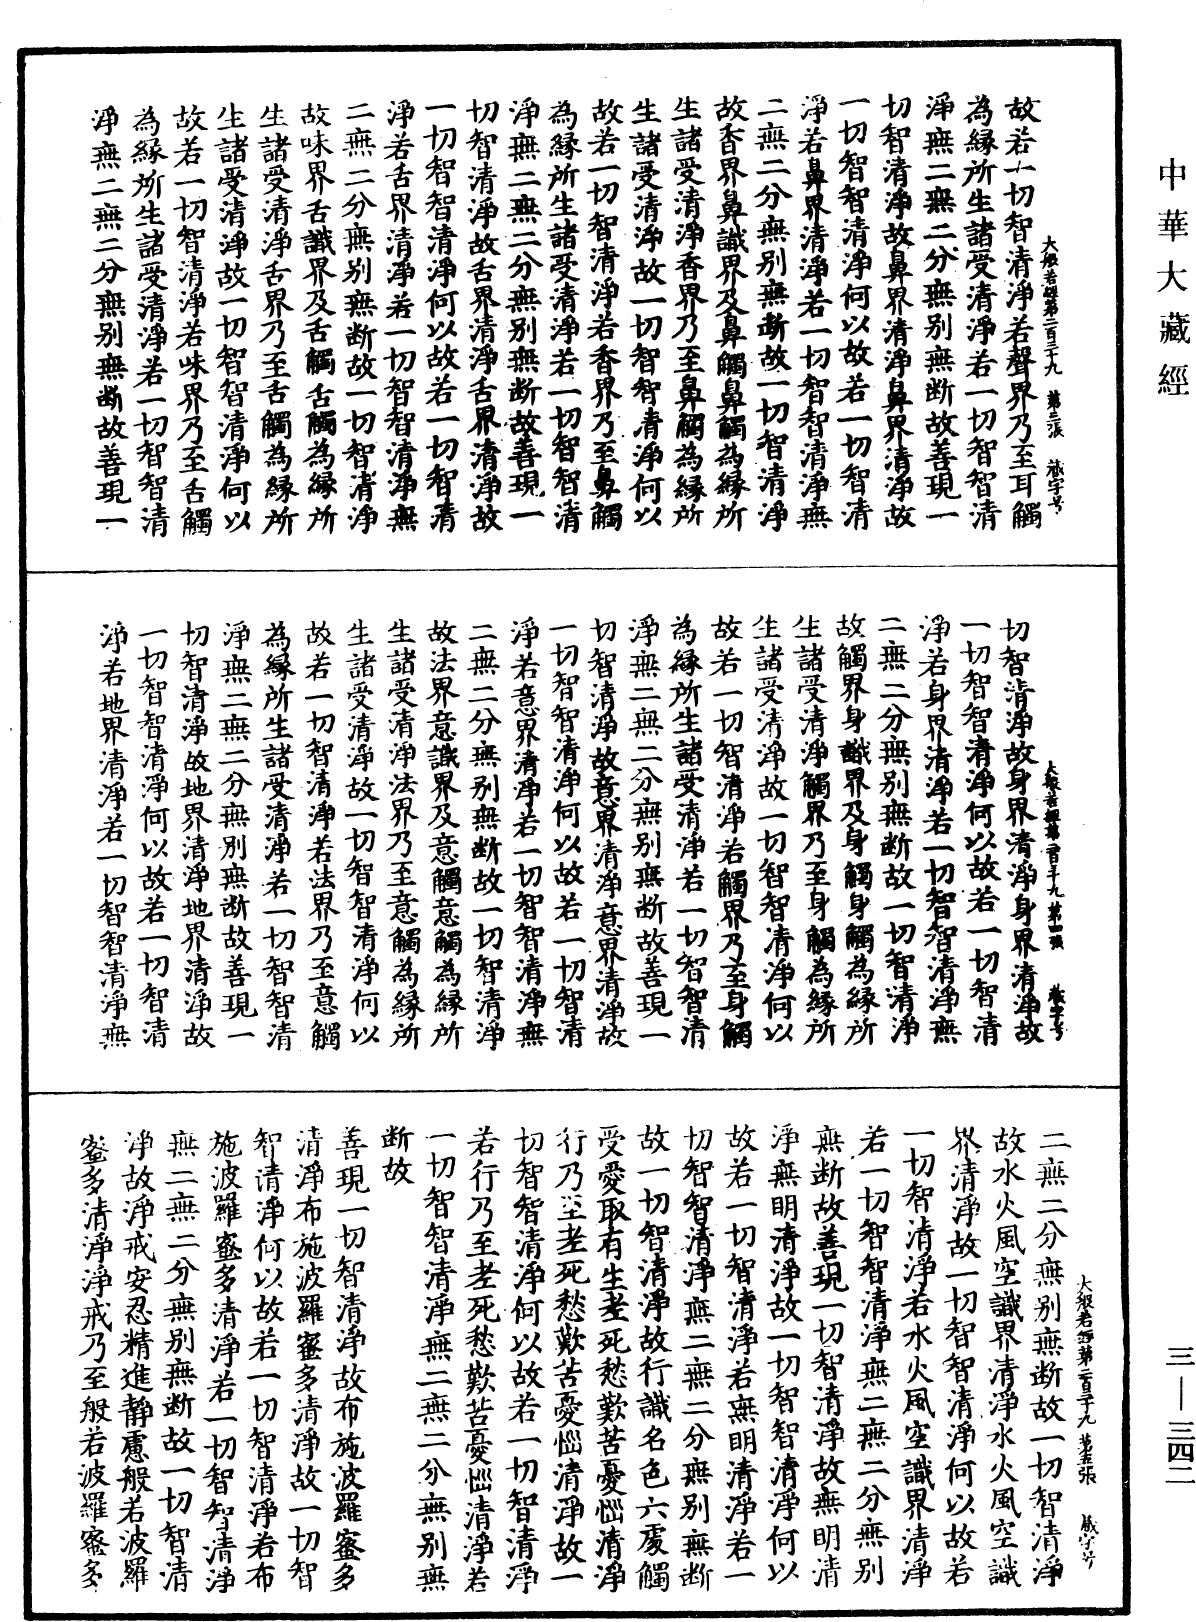 中華大藏經
故若一切智清淨若聲界乃至耳觸
為緣所生諸受清淨若一切智智清
淨無二無二分無别無断故善現一
切智清淨故鼻界清淨鼻界清淨故
一切智智清淨何以故若一切智清
淨若鼻界清淨若一切智智清淨無
二無二分無别無断故一切智清淨
故香界鼻識界及鼻觸鼻觸為緣所
生諸受清淨香界乃至鼻觸為緣所
生諸受清淨故一切智智清淨何以
故若一切智清淨若香界乃至鼻觸
為緣所生諸受清淨若一切智智清
淨無二無二分無别無断故善現一
切智清淨故舌界清淨舌界清淨故
一切智智清淨何以故若一切智清
淨若舌界清淨若一切智智清淨無
二無二分無别無断故一切智清淨
故味界舌識界及舌觸舌觸為緣所
生諸受清淨舌界乃至舌觸為緣所
生諸受清淨故一切智智清淨何以
故若一切智清淨若味界乃至舌觸
為緣所生諸受清淨若一切智智清
淨無二無二分無别無断故善現一
大般若經第二百三十九 第三張 藏字号
切智清淨故身界清淨身界清淨故
一切智智清淨何以故若一切智清
淨若身界清淨若一切智智清淨無
二無二分無别無断故一切智清淨
故觸界身識界及身觸身觸為緣所
生諸受清淨觸界乃至身觸為緣所
生諸受清淨故一切智智清淨何以
故若一切智清淨若觸界乃至身觸
為緣所生諸受清淨若一切智智清
淨無二無二分無别無断故善現一
切智清淨故意界清淨意界清淨故
一切智智清淨何以故若一切智清
淨若意界清淨若一切智智清淨無
二無二分無别無断故一切智清淨
故法界意識界及意觸意觸為緣所
生諸受清淨法界乃至意觸為緣所
生諸受清淨故一切智智清淨何以
故若一切智清淨若法界乃至意觸
為緣所生諸受清淨若一切智智清
淨無二無二分無别無断故善現一
切智清淨故地界清淨地界清淨故
一切智智清淨何以故若一切智清
淨若地界清淨若一切智智清淨無
大般若經第二百三十九 第四張 藏字号
二無二分無别無断故一切智清淨
故水火風空識界清淨水火風空識
界清淨故一切智智清淨何以故若
一切智清淨若水火風空識界清淨
若一切智智清淨無二無二分無别
無断故善現一切智清淨故無明清
淨無明清淨故一切智智清淨何以
故若一切智清淨若無明清淨若一
切智智清淨無二無二分無别無断
故一切智清淨故行識名色六處觸
受愛取有生老死愁歎苦憂惱清淨
行乃至老死愁歎苦憂惱清淨故一
切智智清淨何以故若一切智清淨
若行乃至老死愁歎苦憂惱清淨若
一切智智清淨無二無二分無别無
断故
善現一切智清淨故布施波羅蜜多
清淨布施波羅蜜多清淨故一切智
智清淨何以故若一切智清淨若布
施波羅蜜多清淨若一切智智清淨
無二無二分無别無断故一切智清
淨故淨戒安忍精進靜慮般若波羅
蜜多清淨淨戒乃至般若波羅蜜多
大般若經第二百三十九 第五張 藏字号
三—三四二